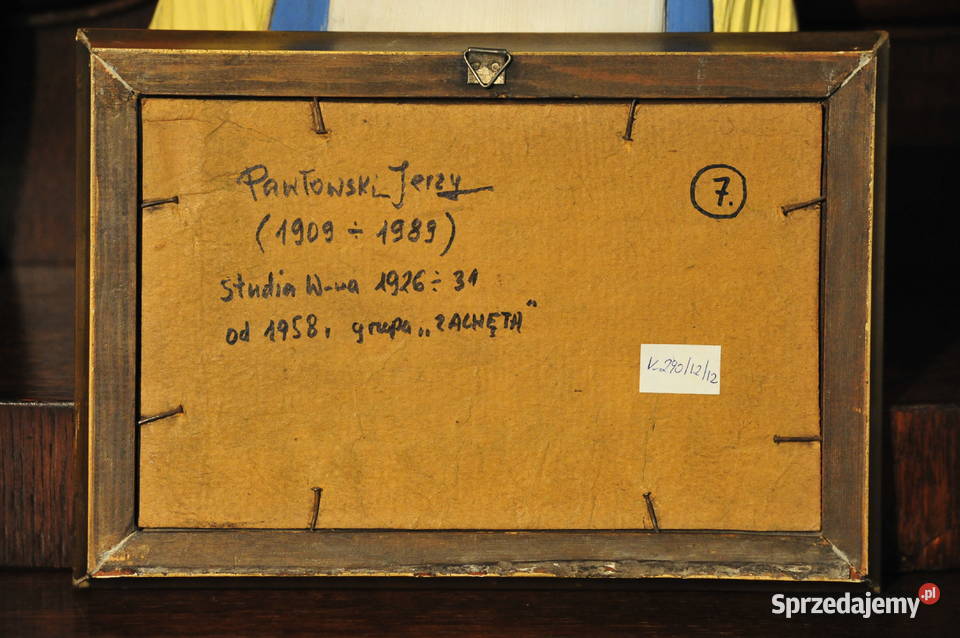 Pawłowski Jerzy
7.
(1909 ÷ 1989)
Studia W-wa 1926 ÷ 31
od 1958r grupa „ZACHĘTA”
V-290/12/12
Sprzedajemy.pl